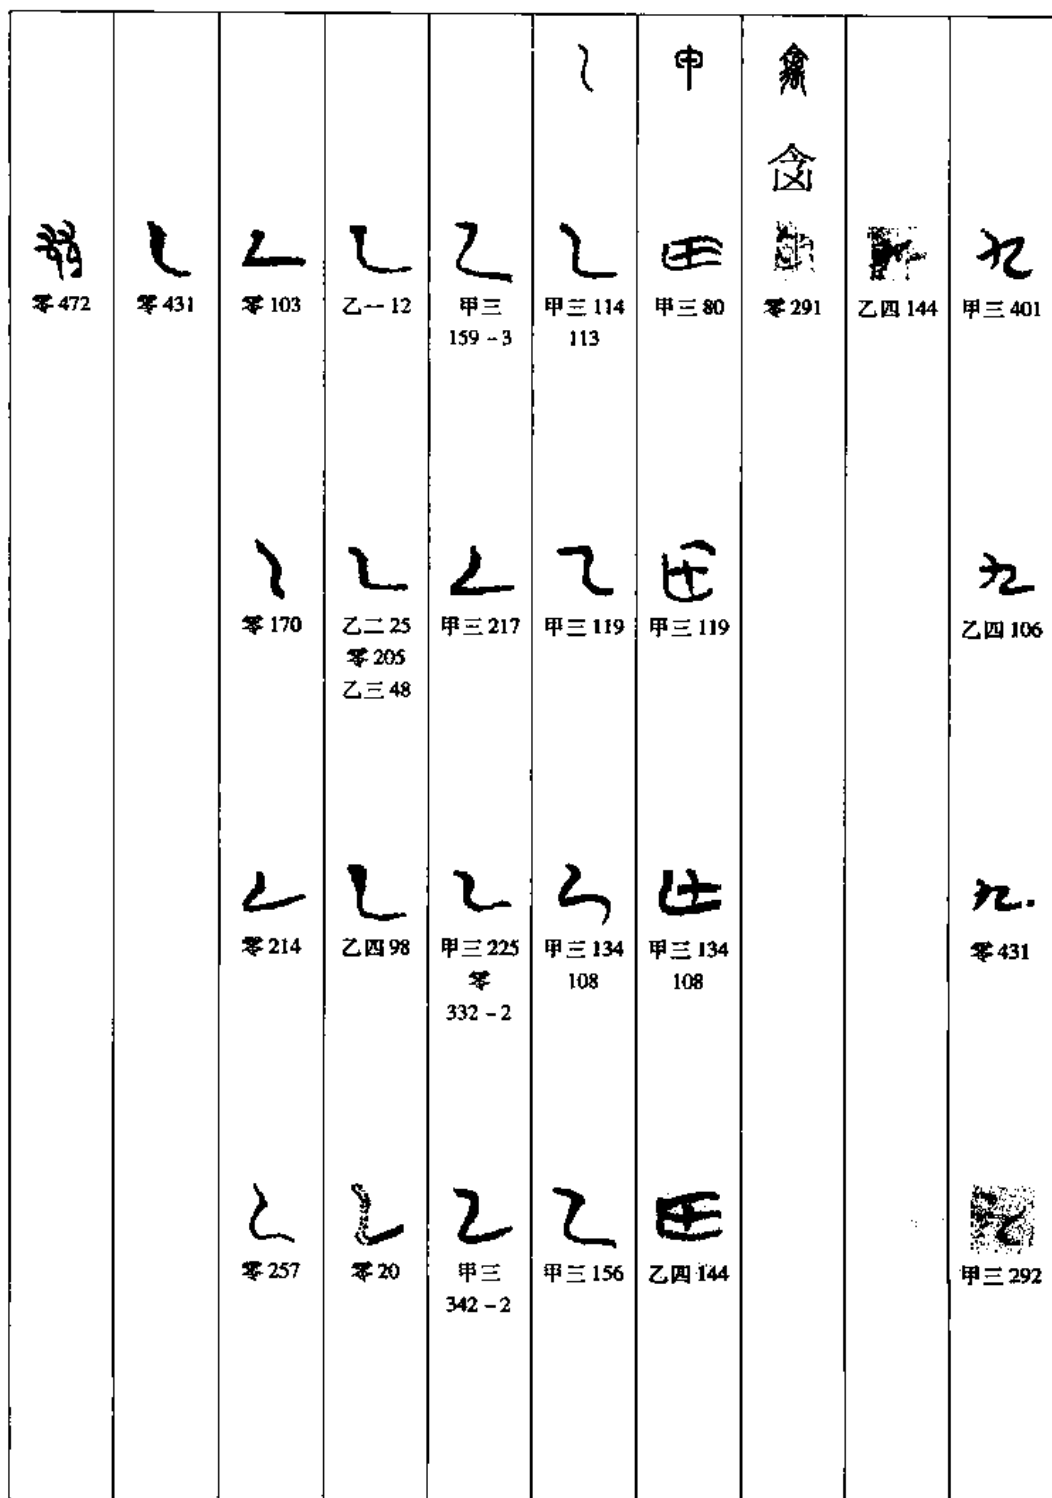 九
甲三 401
九
乙四 106
九
零 431
甲三 292
乙四 144
禽
零 291
甲
甲
甲三 80
甲
甲三 119
甲
甲三 134
108
甲
乙四 144
乙
乙
甲三 114
113
乙
甲三 119
乙
甲三 134
108
乙
甲三 156
乙
甲三
159-3
乙
甲三 217
乙
甲三 225
零
332-2
乙
甲三
342-2
乙
乙一 12
乙
乙二 25
零 205
乙三 48
乙
乙四 98
乙
零 20
乙
零 103
乙
零 170
乙
零 214
乙
零 257
乙
零 431
零 472